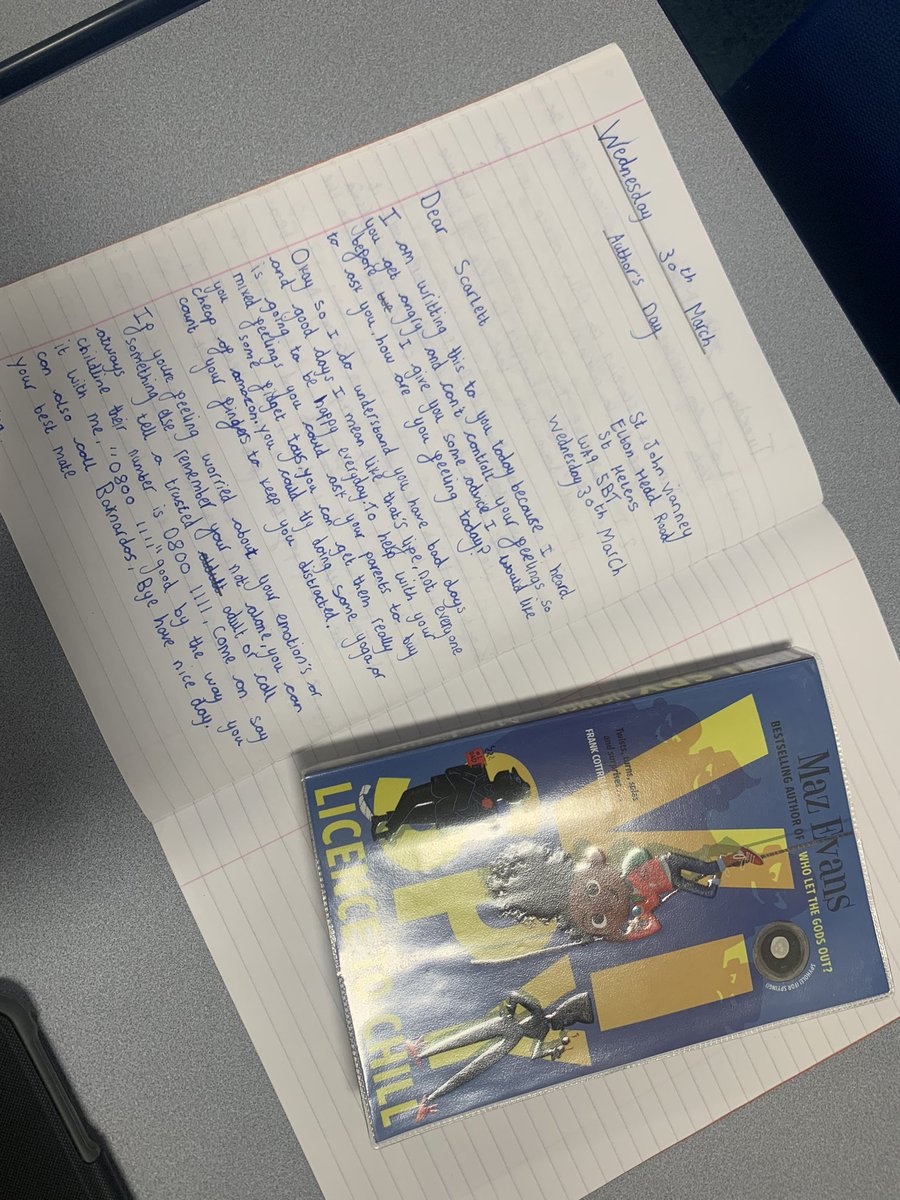 Wednesday 30th March
Author's Day
St John vianney
Elton Head Road
St Helens
WA9 5BT
Wednesday 30th March
Dear Scarlett
I am writting this to you today because I heard
you get angry and can't control your feelings so
before I give you some advice I would like
to ask you, how are you feeling today?
Okay so I do understand you have bad days
and good days I mean like that's life, not everyone
is going to be happy everyday. To help with your
mixed feelings you could ask your parents to buy
you some fidget toys, you can get them really
cheap of amazon. You could try doing some yoga, or
count your fingers to keep you distracted.
If you're feeling worried about your emotion's or
something else remember your not alone, you can
always tell a trusted adult or call
childline their number is 0800 1111, Come on say
it with me, "0800 1111" good by the way you
can also call Barnardos, Bye have nice day.
your best mate
Maz Evans
BESTSELLING AUTHOR OF WHO LET THE GODS OUT?
SPYHOLE! (FOR SPYING!)
VI
SPY
Twists, turns, spies
and surprises
FRANK COTTR
LICENCE TO CHILL